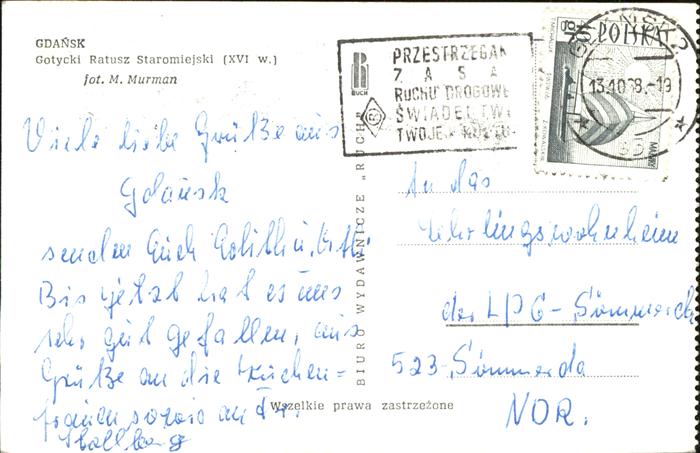 GDAŃSK
Gotycki Ratusz Staromiejski (XVI w.)
fot. M. Murman
RUCH
PRZESTRZEGAN
ZASA
RUCHU DROGOWE
ŚWIADCZY
TWOJEJ
POLSKA
13.10.68.-19
Viele liebe Grüße aus
Gdańsk
senden Euch
Bis jetzt hat es uns
sehr gut gefallen,
Grüße an die Küchen=
frauen sowie an
BIURO WYDAWNICZE „RUCH”
An das
Lehrlingswohnheim
der LPG - Sömmerda
523 - Sömmerda
NOR.
Wszelkie prawa zastrzeżone